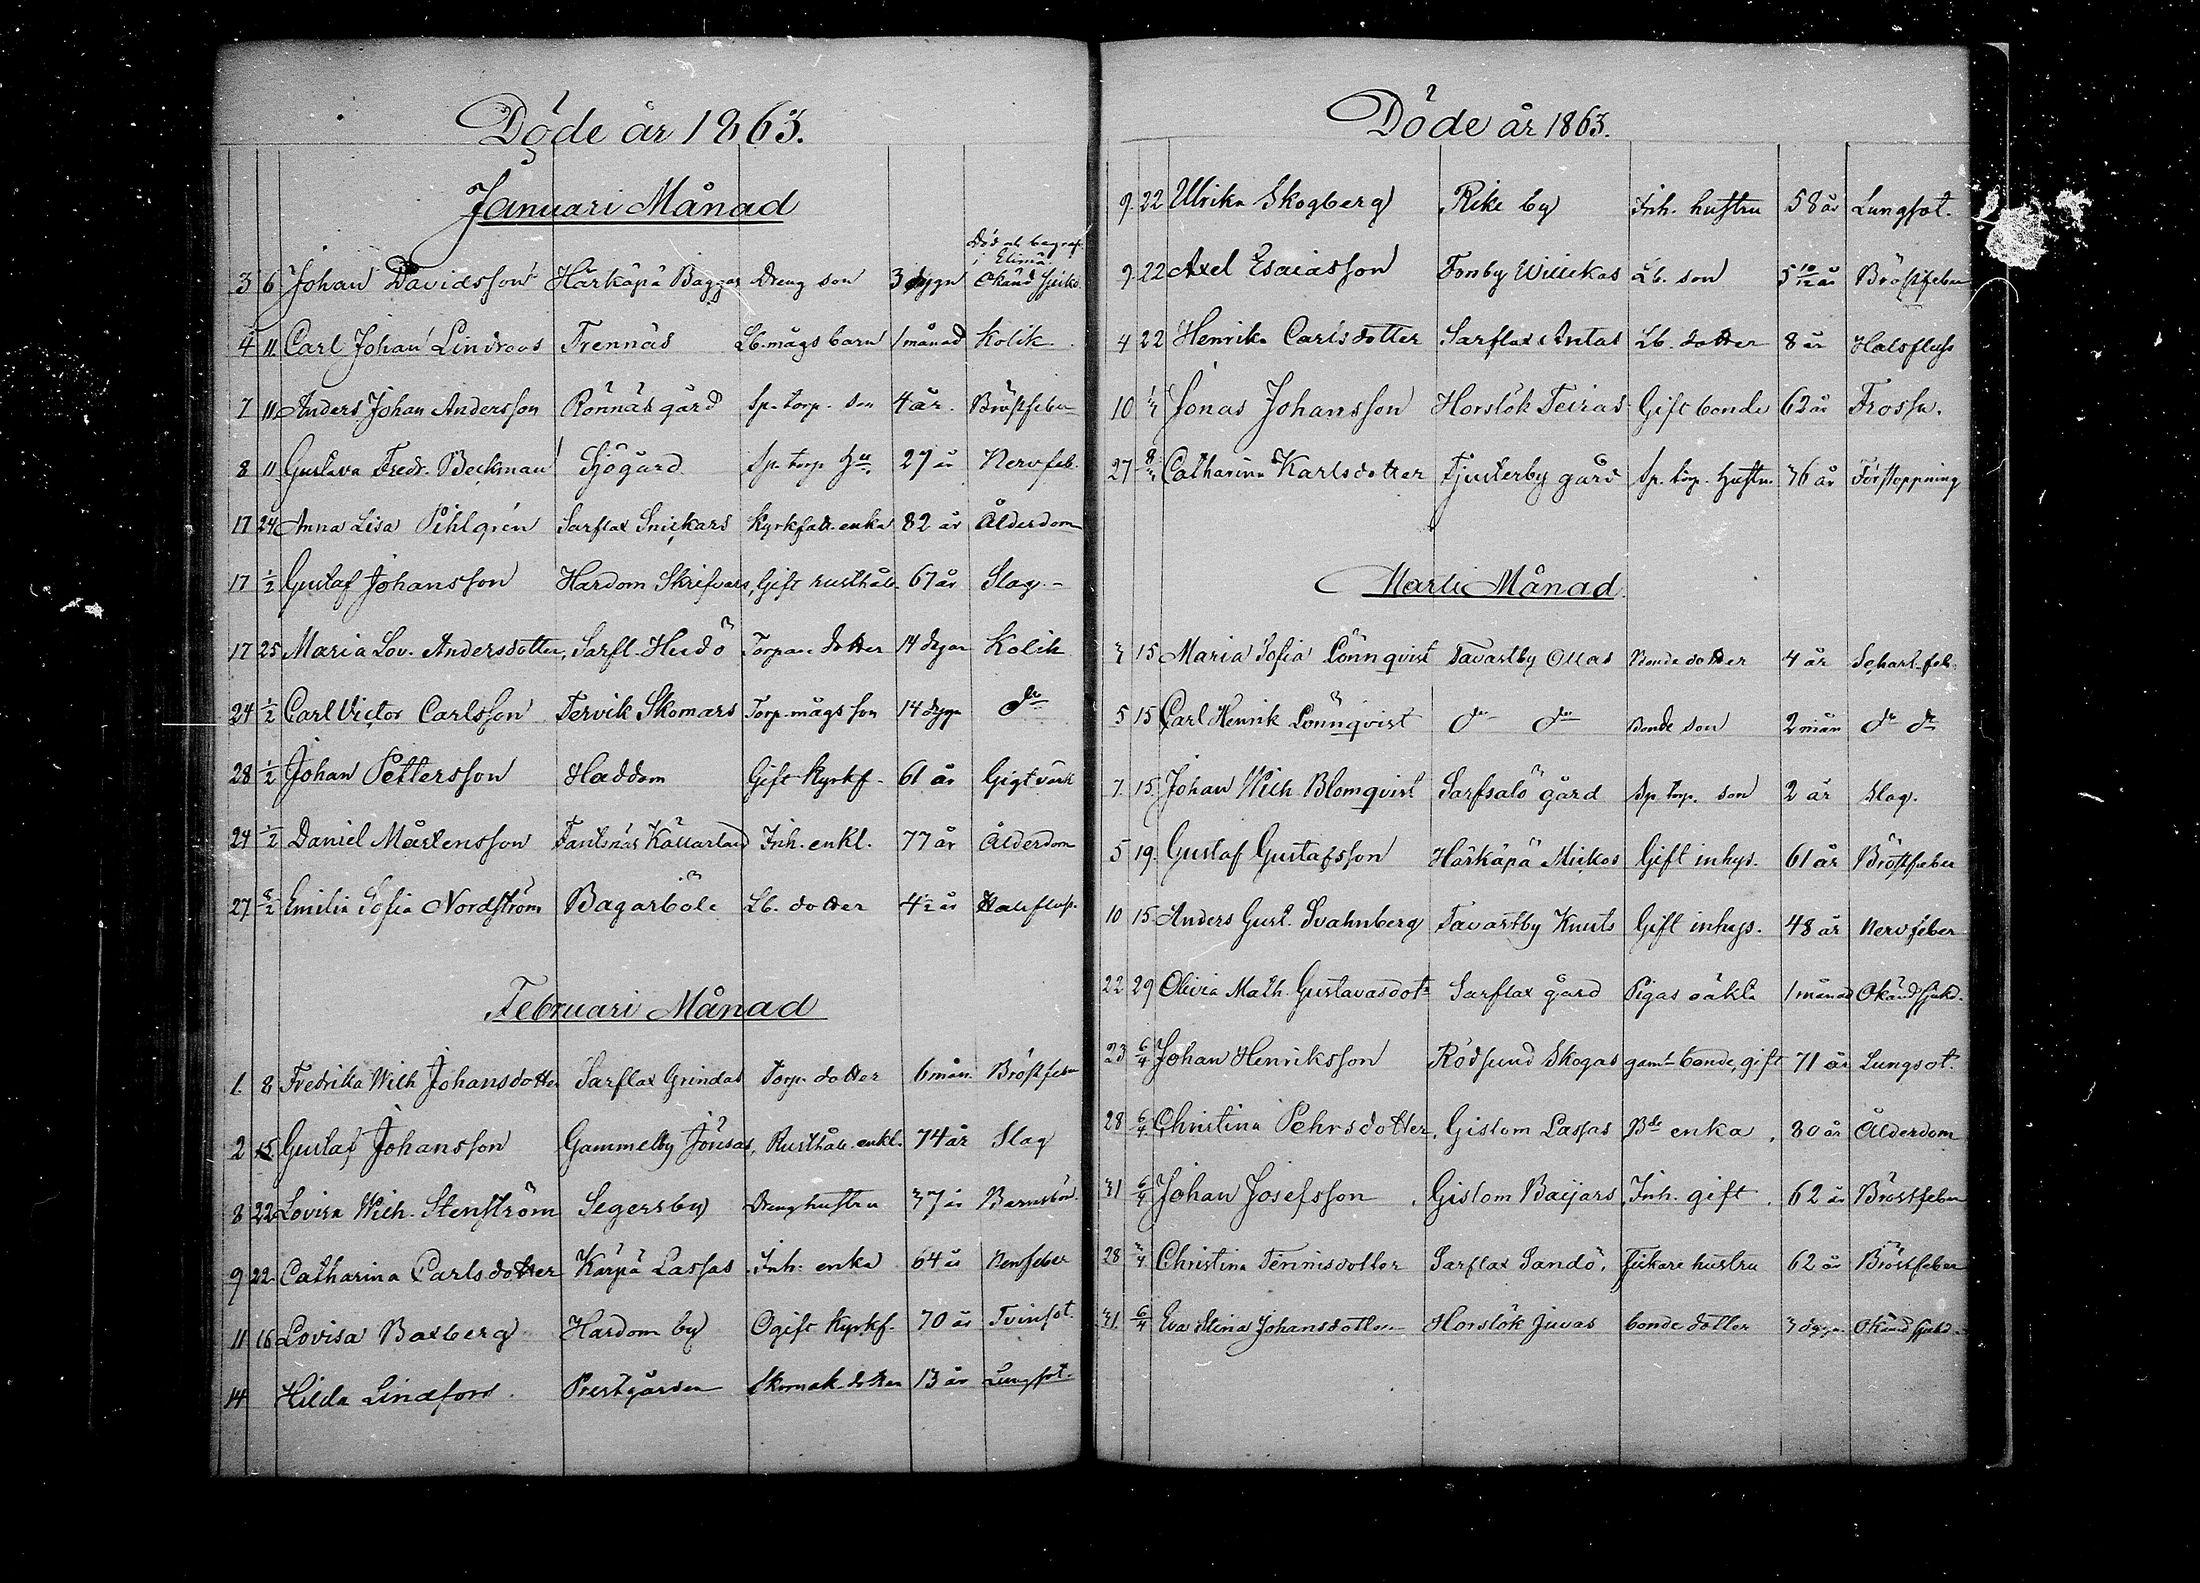 Döde år 1863.
Januari Månad
Död och begraf.
i Elimä.
3 6 Johan Davidsson Härkäpä Baggas Dreng son 3 dygn Okänd sjukd.
4 11 Carl Johan Lindroos Trennäs Lb. mågs barn 1 månad Kolik
7 11 Anders Johan Andersson Rönnäs gård Sp. torp. son 4 år. Bröstfeber
8 11 Gustava Fredr. Beckman Sjögård Sp. torp. Hu 27 år Nervfeb.
17 24 Anna Lisa Pihlgrén Sarflax Snickars Kyrkfatt. enka 82 år Ålderdom
17 1/2 Gustaf Johansson Hardom Skrifvars, Gift rusthåll. 67 år Slag.
17 25 Maria Lov. Andersdotter, Sarfl. Hudö Torpare dotter 14 dygn Kolik
24 1/2 Carl Victor Carlsson Tervik Skomars Torp. mågs son 14 dygn do
28 1/2 Johan Pettersson Haddom Gift kyrkf. 61 år Gigtvärk
24 1/2 Daniel Mårtensson Fantsnäs Källarland Inh. enkl. 77 år Ålderdom
27 8/2 Emilia Sofia Nordström Bagarböle Lb. dotter 4 1/2 år Halsfluss.
Februari Månad
1. 8 Fredrika Wilh Johansdotter Sarflax Grindas Torp. dotter 6 mån. Bröstfeber
2 15 Gustaf Johansson Gammelby Jönsas, Rusthåll. enkl. 74 år Slag
8 22 Lovisa Wilh. Stenström Segersby Dreng hustru 37 år Barnsbörd.
9 22 Catharina Carlsdotter Kärpä Lassas Inh. enka 64 år Nervfeber
11 16 Lovisa Baxberg Hardom by Ogift kyrkf. 70 år Tvinsot.
14 Hilda Lindfors. Prestgården Skomak. dotter 13 år Lungsot.
Döde år 1863.
9. 22 Ulrika Skogberg Rike by Inh. hustru 58 år Lungsot.
9 22 Axel Esaiasson Tonby Willekas Lb. son 5 10/12 år Bröstfeber
4 22 Henrika Carlsdotter Sarflax Antas Lb. dotter 8 år Halsfluss
10 1/3 Jonas Johansson Horslök Teiras Gift bonde 62 år Frossa.
27 8/3 Catharina Karlsdotter Tjusterby gård Sp. torp. hustru 76 år Förstoppning
Marti Månad
3 15 Maria Sofia Lönnqvist Tavastby Ollas Bonde dotter 4 år Scharl. feb.
5 15 Carl Henrik Lönnqvist do do Bonde son 2 mån do do
7. 15. Johan Wilh Blomqvist Sarfsalö gård Sp. torp. son 2 år Slag.
5 19. Gustaf Gustafsson Härkäpä Mickos Gift inhys. 61 år Bröstfeber
10 15 Anders Gust. Svahnberg Tavastby Knuts Gift inhys. 48 år Nervfeber
22 29 Olivia Math. Gustavasdotr Sarflax gård Pigas oäkta 1 månad Okänd sjukd.
23 6/4 Johan Henriksson Rödsund Skogas gaml. bonde, gift 71 år Lungsot.
28 6/4 Christina Pehrsdotter, Gislom Lassas Bde enka, 80 år Ålderdom
31 6/4 Johan Josefsson, Gislom Baijars Inh. gift, 62 år Bröstfeber
28 3/4 Christina Tennisdotter Sarflax Sandö, fiskare hustru 62 år Bröstfeber
31. 6/4 Eva Stina Johansdotter Horslök Juvas bonde dotter 3 dygn. Okänd sjukd.